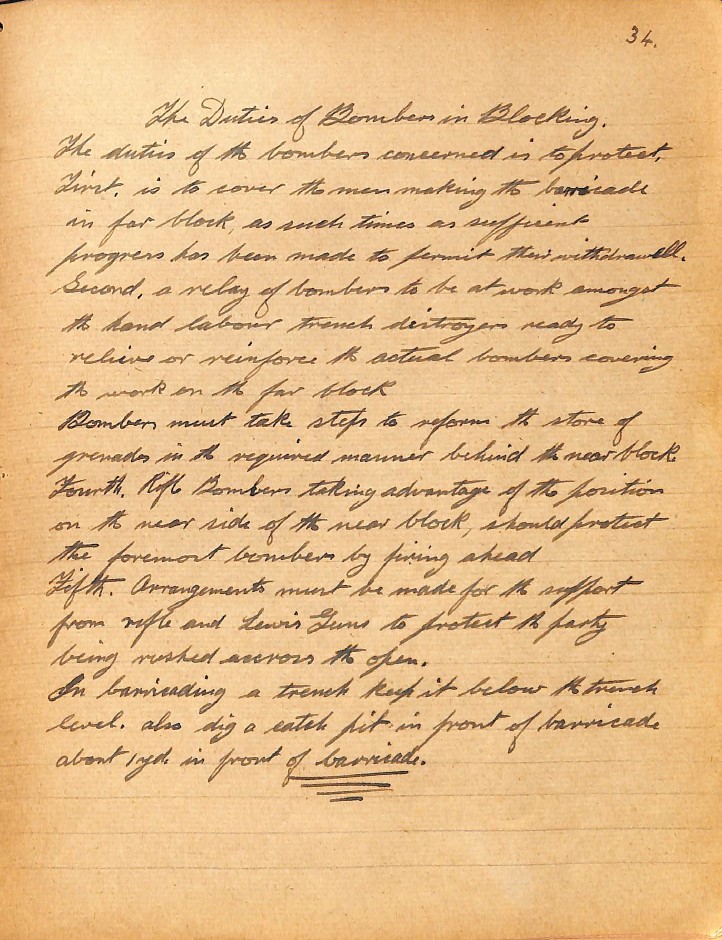 34.
The Duties of Bombers in Blocking.
The duties of th bombers concerned is to protect,
First, is to cover th men making th barricade
in far block, as such times as sufficient
progress has been made to permit their withdrawell.
Second, a relay of bombers to be at work amongst
th hand labour trench distroyers ready to
relieve or reinforce th actual bombers covering
th work on th far block
Bombers must take steps to reform th store of
grenades in th required manner behind th near block
Fourth, Rifle Bombers taking advantage of th position
on th near side of th near block, should protect
the foremost bombers by firing ahead
Fifth. Arrangements must be made for th support
from rifle and Lewis Guns to protect th party
being rushed accross th open.
In barricading a trench keep it below th trench
level. also dig a catch pit in front of barricade
about 1yd. in front of barricade.